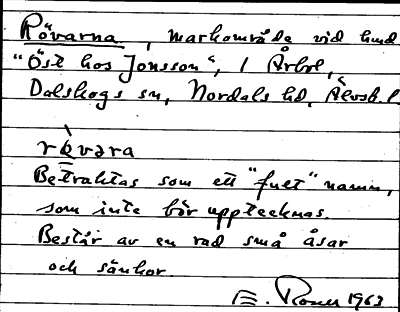 Rövarna, markområde vid hmd
"Öst hos Jonsson", i Årbol,
Dalskogs sn, Nordals hd, Älvsb. l.
rövara
Betraktas som ett "fult" namn,
som inte bör upptecknas.
Består av en rad små åsar
och sänkor.
E. 1963